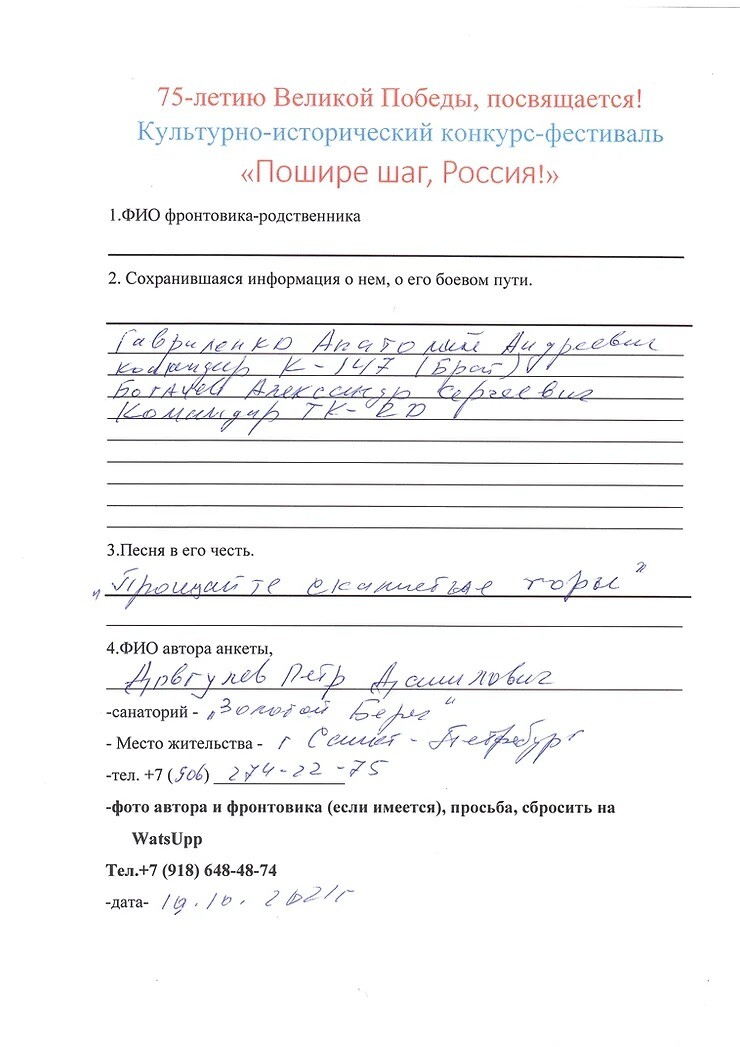 75-летию Великой Победы, посвящается!
Культурно-исторический конкурс-фестиваль
«Пошире шаг, Россия!»
1.ФИО фронтовика-родственника
2. Сохранившаяся информация о нем, о его боевом пути.
Гавриленко Анатолий Андреевич
командир К-147 (Брат)
Александр Сергеевич
Командир ТК-20
3.Песня в его честь.
"Прощайте скалистые горы"
4.ФИО автора анкеты,
Петр Данилович
-санаторий - "Золотой Берег"
- Место жительства - г Санкт-Петербург
-тел. +7 (906) 274-22-75
-фото автора и фронтовика (если имеется), просьба, сбросить на
WatsUpp
Тел.+7 (918) 648-48-74
-дата- 19.10.2021г